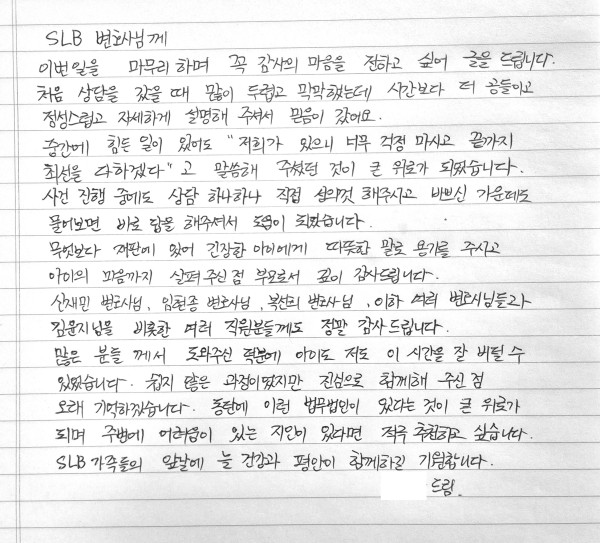 SLB 변호사님께
이번일을 마무리하며 꼭 감사의 마음을 전하고 싶어 글을 드립니다.
처음 상담을 갔을 때 많이 두렵고 막막했는데 시간보다 더 공들이고
정성스럽고 자세하게 설명해 주셔서 믿음이 갔어요.
중간에 힘든 일이 있어도 "저희가 있으니 너무 걱정 마시고 끝까지
최선을 다하겠다"고 말씀해 주셨던 것이 큰 위로가 되었습니다.
사건 진행 중에도 상담 하나하나 직접 성의껏 해주시고 바쁘신 가운데도
물어보면 바로 답을 해주셔서 도움이 되었습니다.
무엇보다 재판에 있어 긴장한 아이에게 따뜻한 말로 용기를 주시고
아이의 마음까지 살펴주신 점 부모로서 깊이 감사드립니다.
신재민 변호사님, 임원종 변호사님, 복선희 변호사님, 이하 여러 변호사님들과
김윤지님을 비롯한 여러 직원분들께도 정말 감사드립니다.
많은 분들 께서 도와주신 덕분에 아이도 저도 이 시간을 잘 버틸 수
있었습니다. 쉽지 않은 과정이었지만 진심으로 함께해 주신 점
오래 기억하겠습니다. 동탄에 이런 법무법인이 있다는 것이 큰 위로가
되며 주변에 어려움이 있는 지인이 있다면 적극 추천하고 싶습니다.
SLB가족들의 앞날에 늘 건강과 평안이 함께하길 기원합니다.
드림.